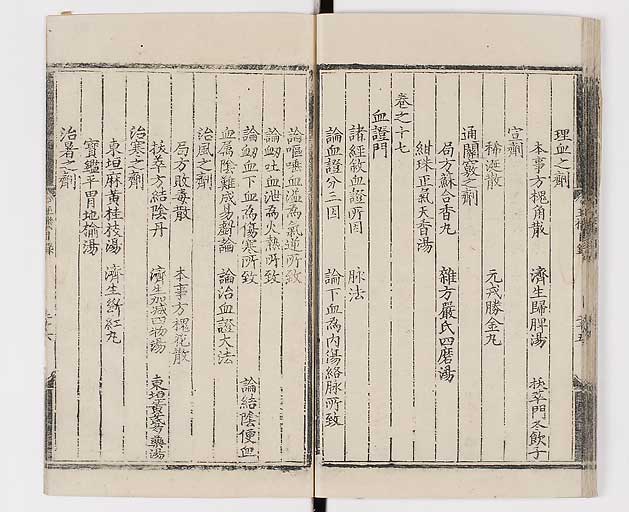 理血之劑
本事方槐角散 濟生歸脾湯 扶萃門冬飲子
宣劑
稀涎散 元戎勝金丸
通關竅之劑
局方蘇合香丸 雜方嚴氏四磨湯
紺珠正氣天香湯
卷之十七
血證門
諸經敘血證所因 脉法
論血證分三因 論下血為内傷絡脉所致
論嘔唾血溢為氣逆所致
論衂吐血泄為火熱所致
論衂血下血為傷寒所致 論結陰便血
血属陰難成易虧論 論治血證大法
治風之劑
局方敗毒散 本事方槐花散
扶萃方結陰丹 濟生加减四物湯 東垣黄芩芍藥湯
治寒之劑
東垣麻黄桂枝湯 濟生断紅丸
寳鑑平胃地榆湯
治暑之劑